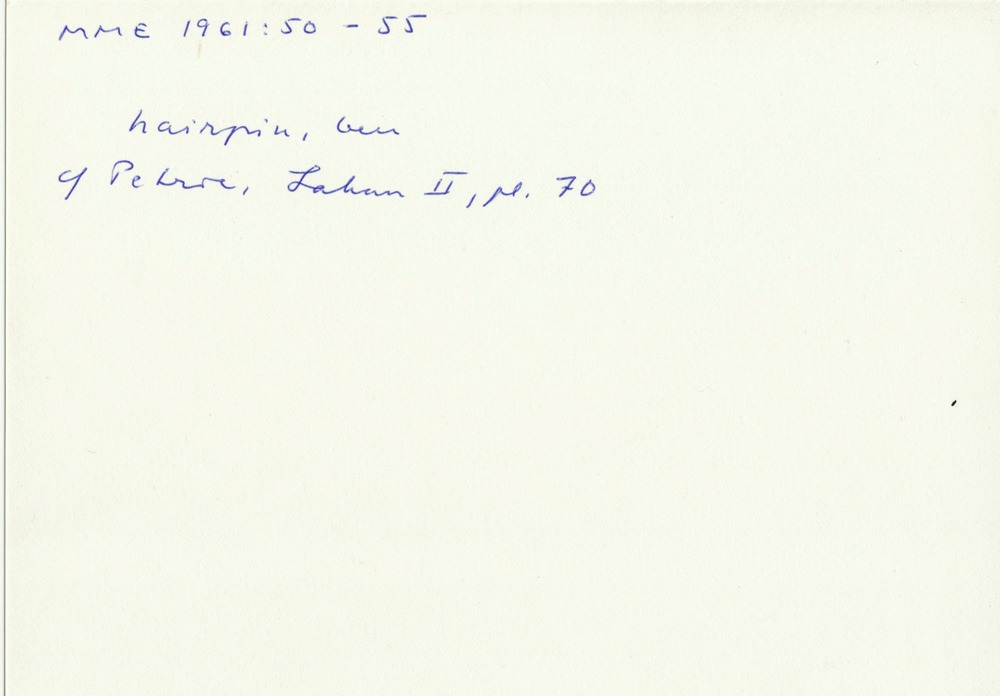 MME 1961:50 - 55
hairpin, ben
cf Petrie, Lahun II, pl. 70